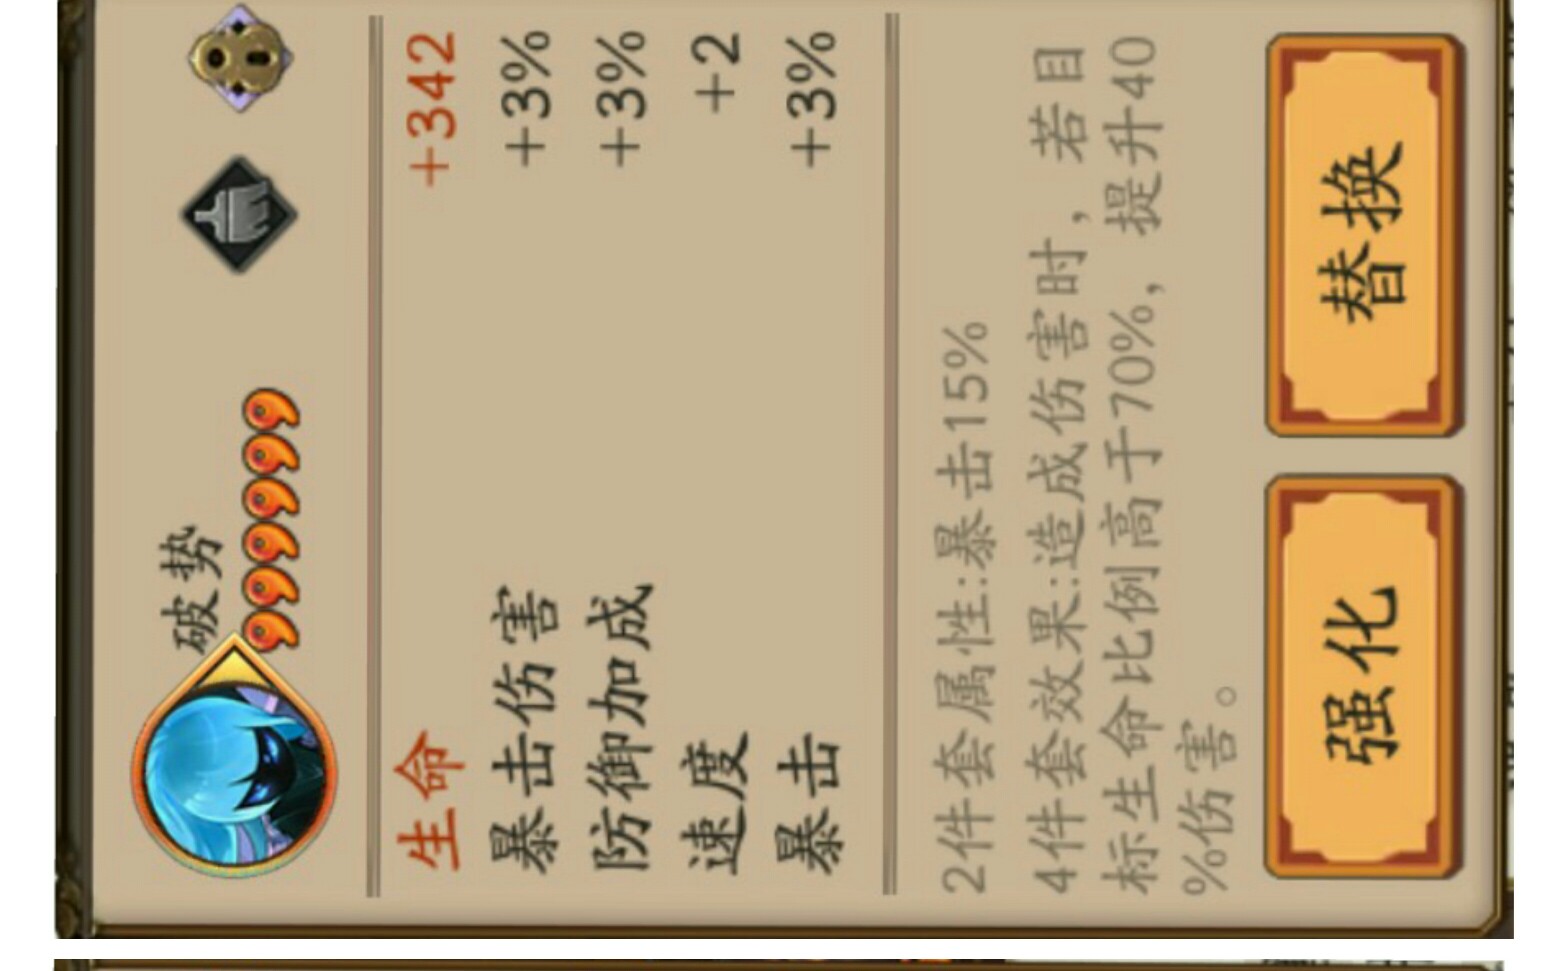 破势
生命 +342
暴击伤害 +3%
防御加成 +3%
速度 +2
暴击 +3%
2件套属性:暴击15%
4件套效果:造成伤害时，若目
标生命比例高于70%，提升40
%伤害。
强化 替换